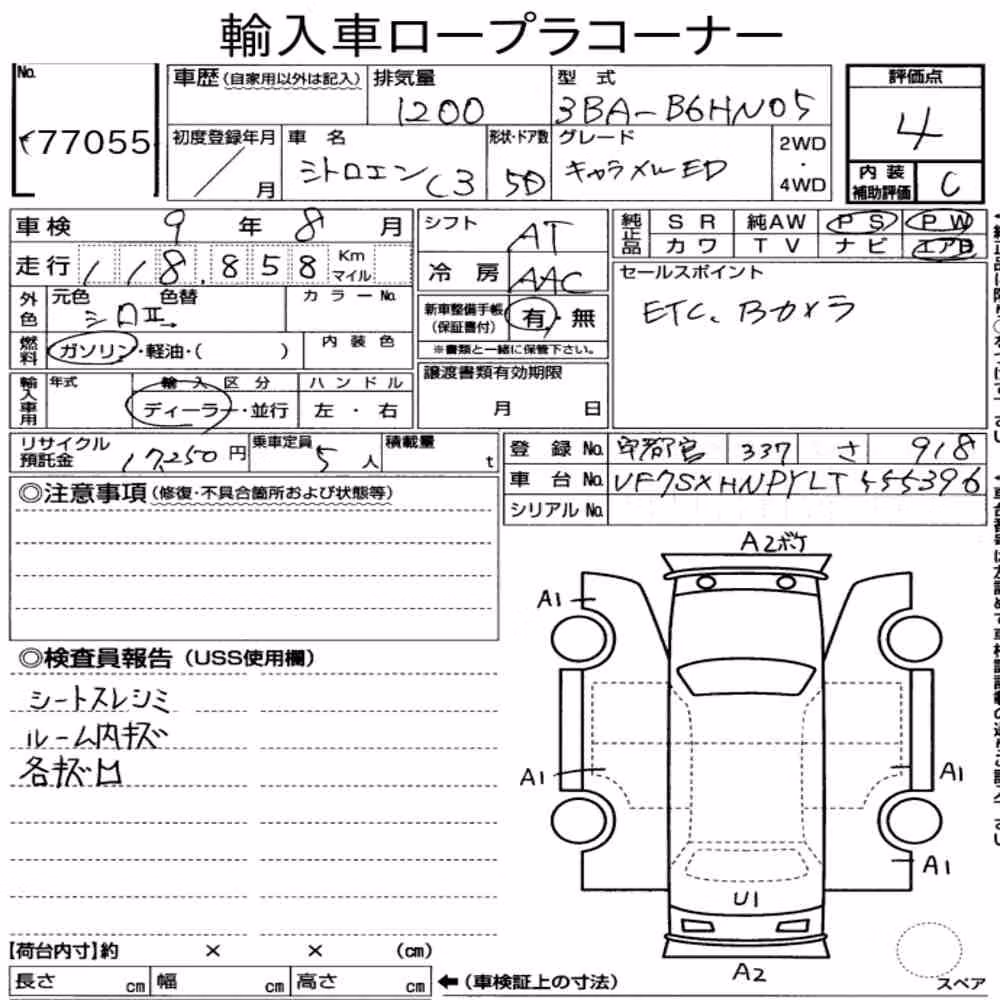 輸入車ロープラコーナー
No. 77055
車歴(自家用以外は記入) 排気量 1200 型式 3BA-B6HN05
評価点 4
初度登録年月 月 車名 シトロエン C3 形状・ドア数 5D グレード キャラメルED 2WD・4WD
内装補助評価 C
車検 9年 8月 シフト AT
純正品 SR 純AW PS PW
カワ TV ナビ エアB
走行 118,858 Km マイル 冷房 AAC
セールスポイント
ETC、Bカメラ
外色 元色 シロII 色替 カラーNo.
新車整備手帳(保証書付) 有・無
※書類と一緒に保管下さい。
燃料 ガソリン・軽油・( ) 内装色
譲渡書類有効期限 月 日
輸入車用 年式 輸入区分 ディーラー・並行 ハンドル 左・右
リサイクル預託金 17,250円 乗車定員 5人 積載量 t
登録No. 宇都宮 337 さ 918
車台No. VF7SXHNPYLT555396
シリアルNo.
◎注意事項(修復・不具合箇所および状態等)
◎検査員報告(USS使用欄)
シートスレシミ
ルーム内キズ
各キズ凹
A2ボケ
A1
A1
A1
A1
U1
A2
スペア
【荷台内寸】約 × × (cm)
長さ cm 幅 cm 高さ cm ←(車検証上の寸法)